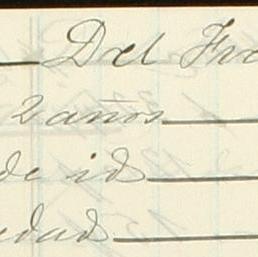 Del Fra
2 años
de id
edad